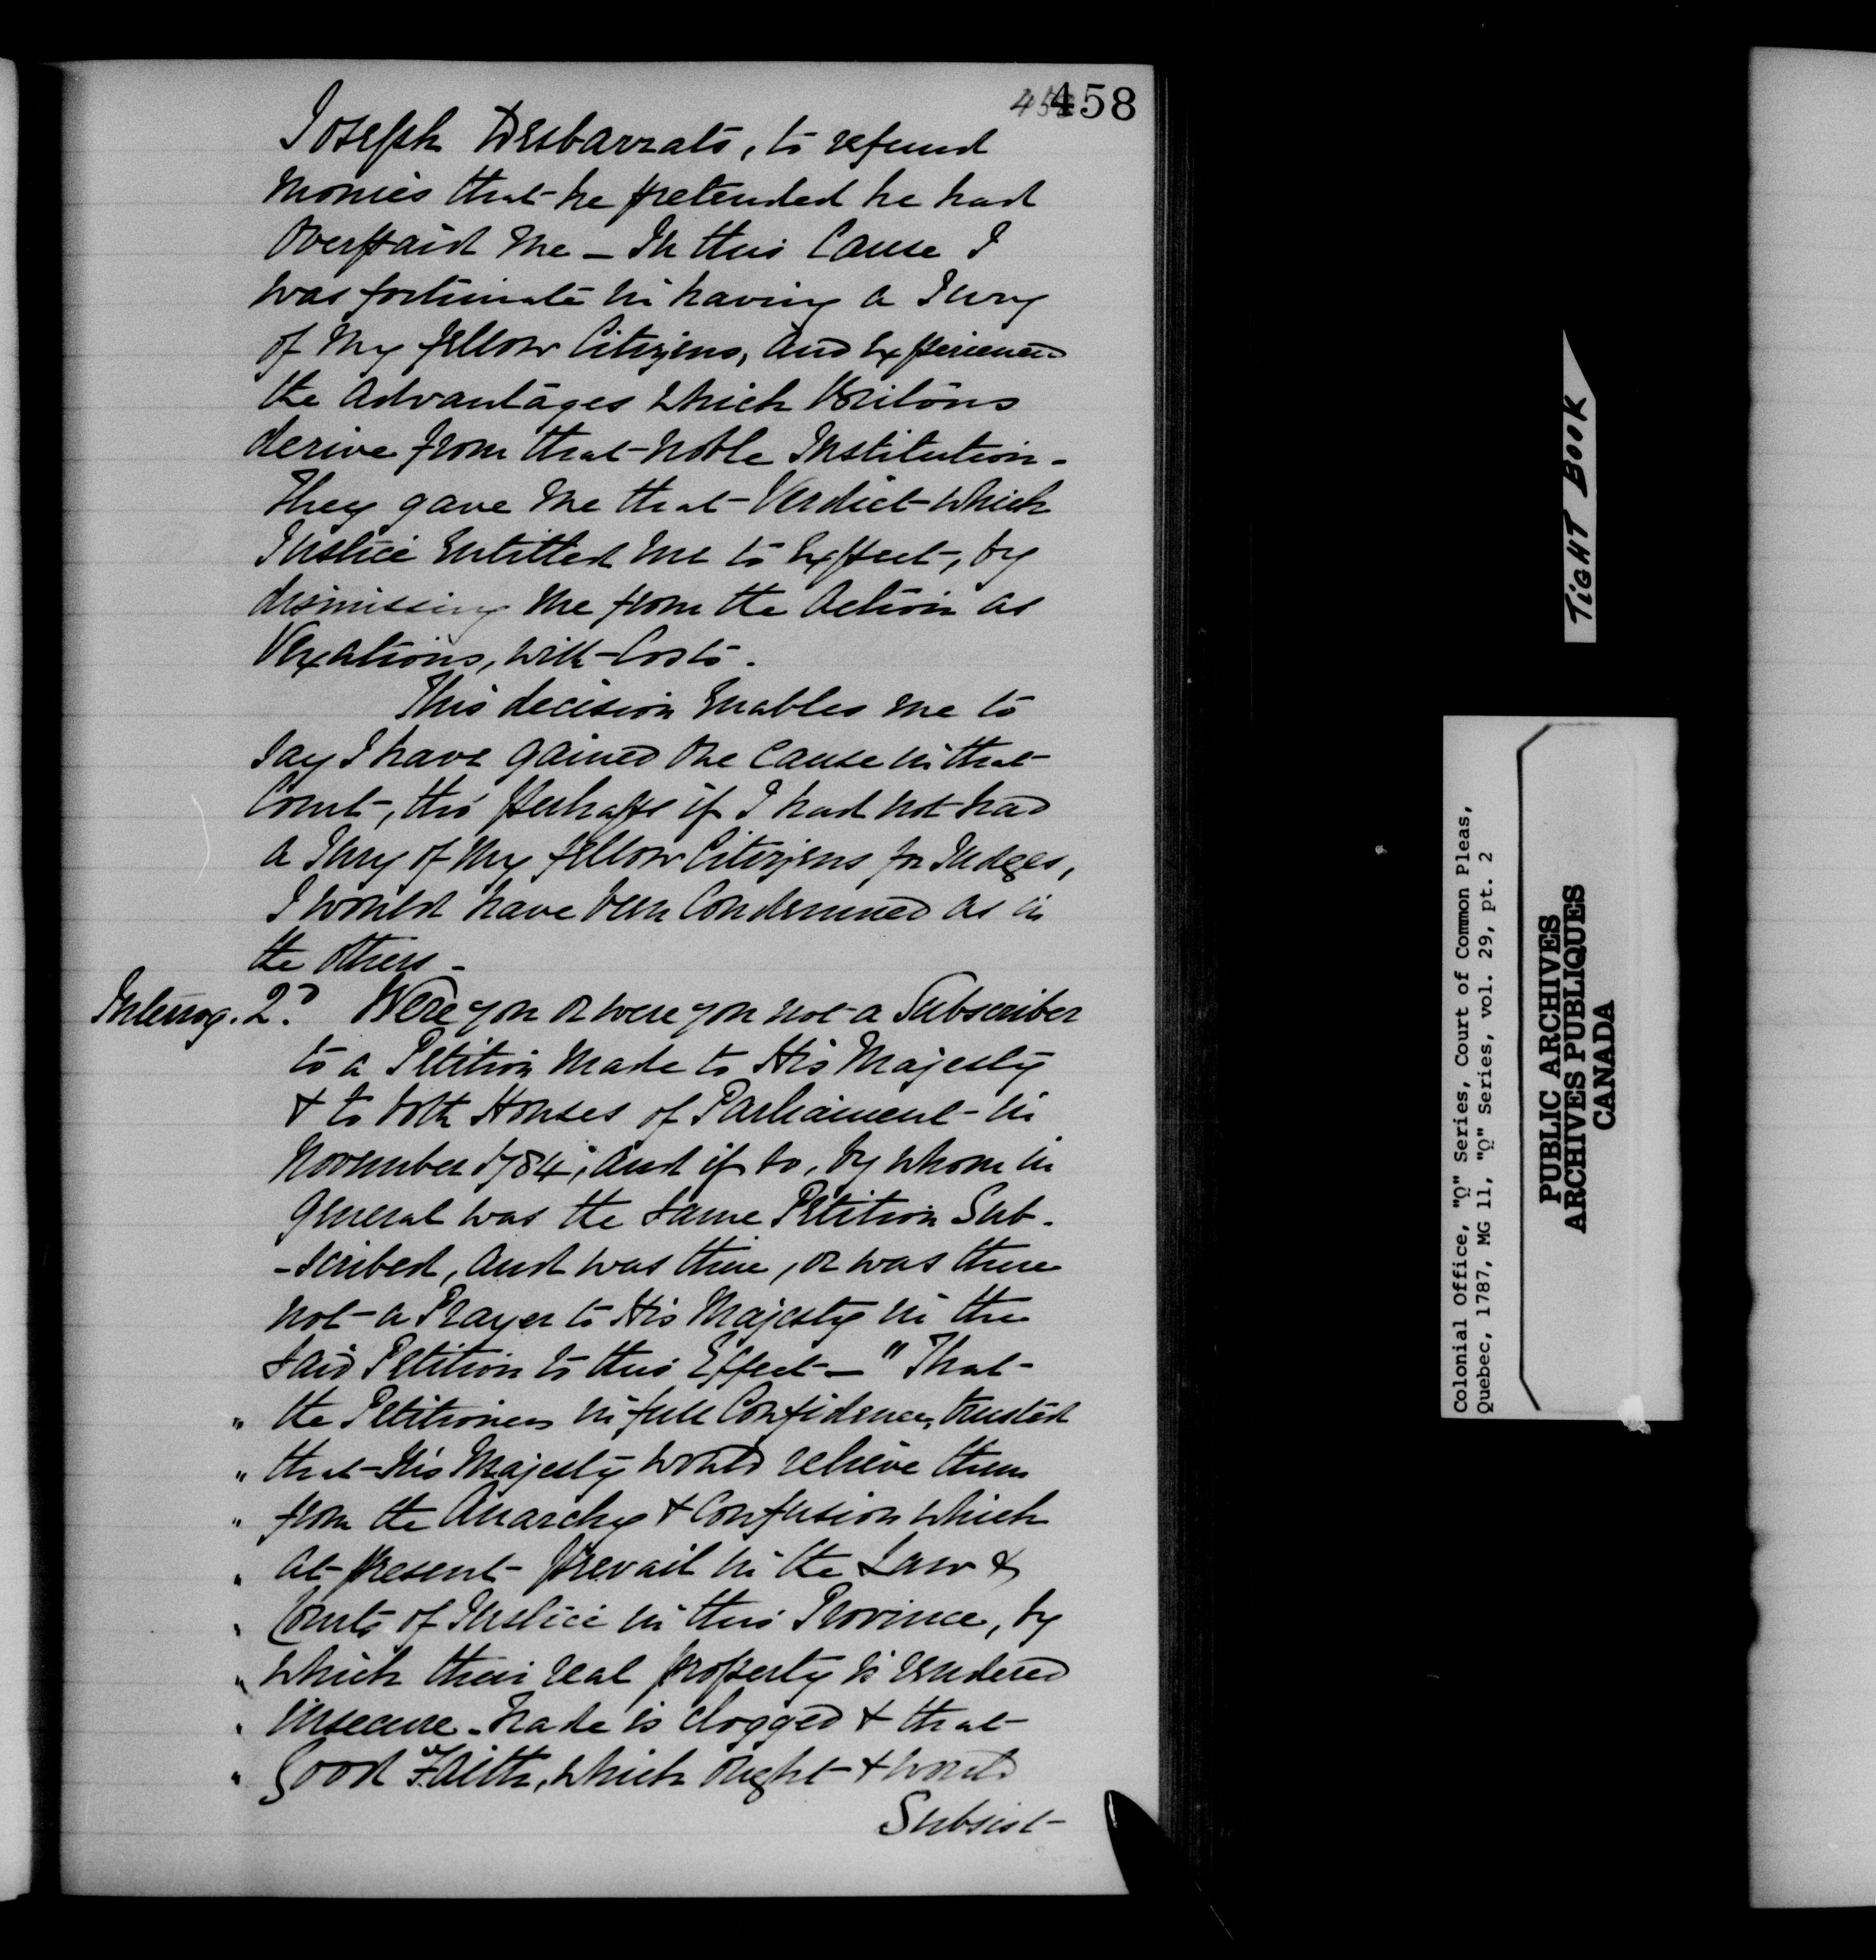 458
Joseph Desbarrats, to refund
Monies that he pretended he had
Overpaid Me – In this Cause I
was fortunate in having a Jury
of My fellow Citizens, and Experienced
the Advantages which Britons
derive from that Noble Institution –
They gave Me that Verdict which
Justice Entitled me to Expect, by
dismissing Me from the Action as
Vexatious, with Costs.
This decision Enables me to
Say I have gained One Cause in that
Court, tho' perhaps if I had not had
a Jury of My fellow Citizens for Judges,
I would have been Condemned as in
the Others –
Interrog. 2d. Were you or were you not a Subscriber
to a Petition Made to His Majesty
& to both Houses of Parliament in
November 1784, and if so, by whom in
General was the same Petition Sub-
-scribed, and was there, or was there
not a Prayer to His Majesty in the
Said Petition to this Effect – "That
" the Petitioners in full Confidence, trusted
" that His Majesty would relieve them
" from the Anarchy & Confusion which
" at present prevail in the Law &
" Courts of Justice in this Province, by
" which their real property is rendered
" insecure – trade is clogged & that
" Good Faith, which Ought & would
Subsist
TIGHT BOOK
Colonial Office, "Q" Series, Court of Common Pleas,
Quebec, 1787, MG 11, "Q" Series, vol. 29, pt. 2
PUBLIC ARCHIVES
ARCHIVES PUBLIQUES
CANADA